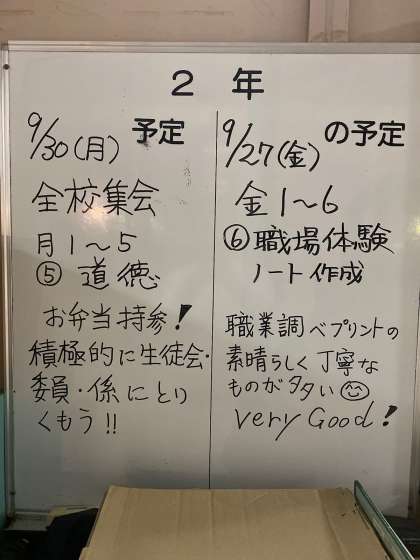 2 年
9/30(月) 予定
全校集会
月1〜5
⑤ 道徳
お弁当持参!
積極的に生徒会・
委員・係にとり
くもう!!
9/27(金) の予定
金1〜6
⑥職場体験
ノート作成
職業調べプリントの
素晴らしく丁寧な
ものが多い
very Good!